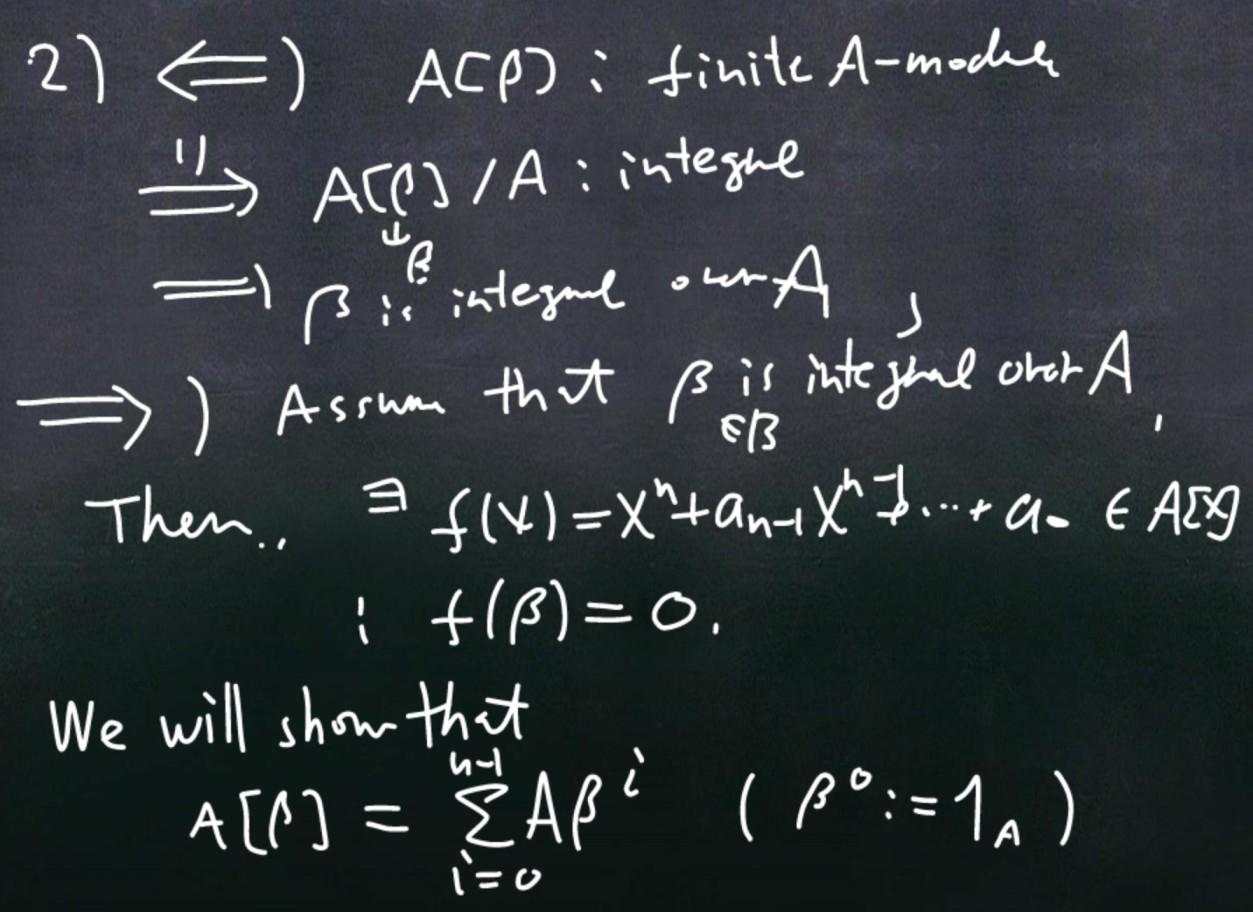 2) ⇐) A[β] : finite A-module
1)⇒ A[β] / A : integral
∋ β
⇒ β is integral over A,
⇒) Assume that β is integral over A,
∈B
Then., ∃ f(X) = Xⁿ + aₙ₋₁Xⁿ⁻¹ + ... + a₀ ∈ A[X]
: f(β) = 0.
We will show that
A[β] = Σ_{i=0}^{n-1} Aβ^i ( β⁰ := 1_A )